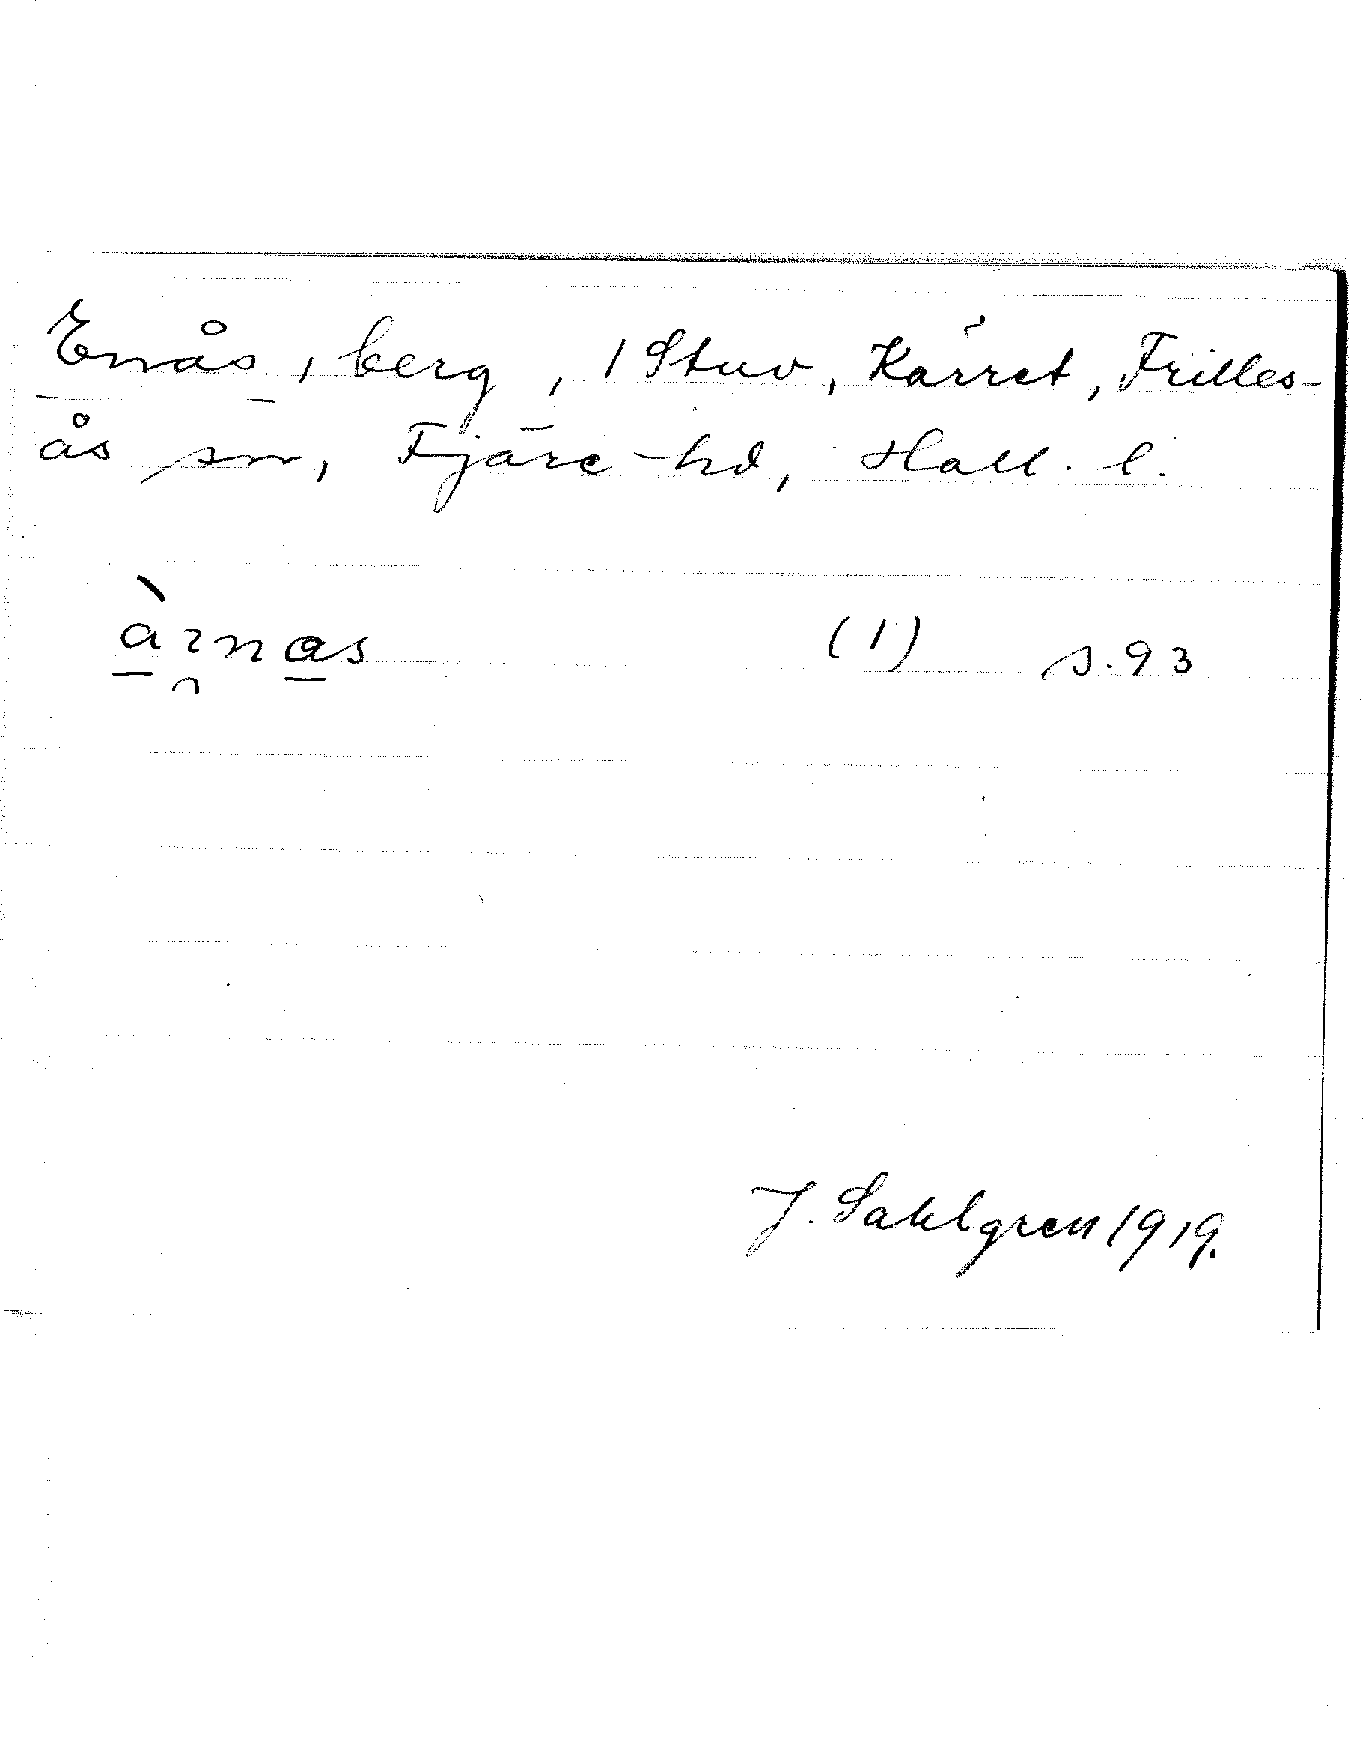 Enås, berg, 1 Stuv, Kärret, Frilles-
ås sn, Fjäre hd, Hall. l.
àrnas (1) s. 93
J. Sahlgren 1919.